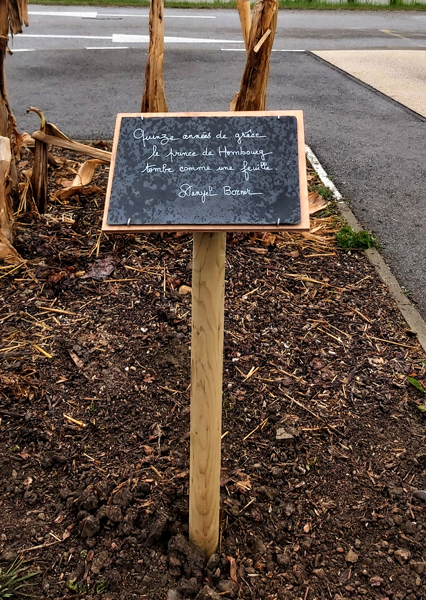 Quinze années de grâce
le prince de Hombourg
tombe comme une feuille
Danyel Borner